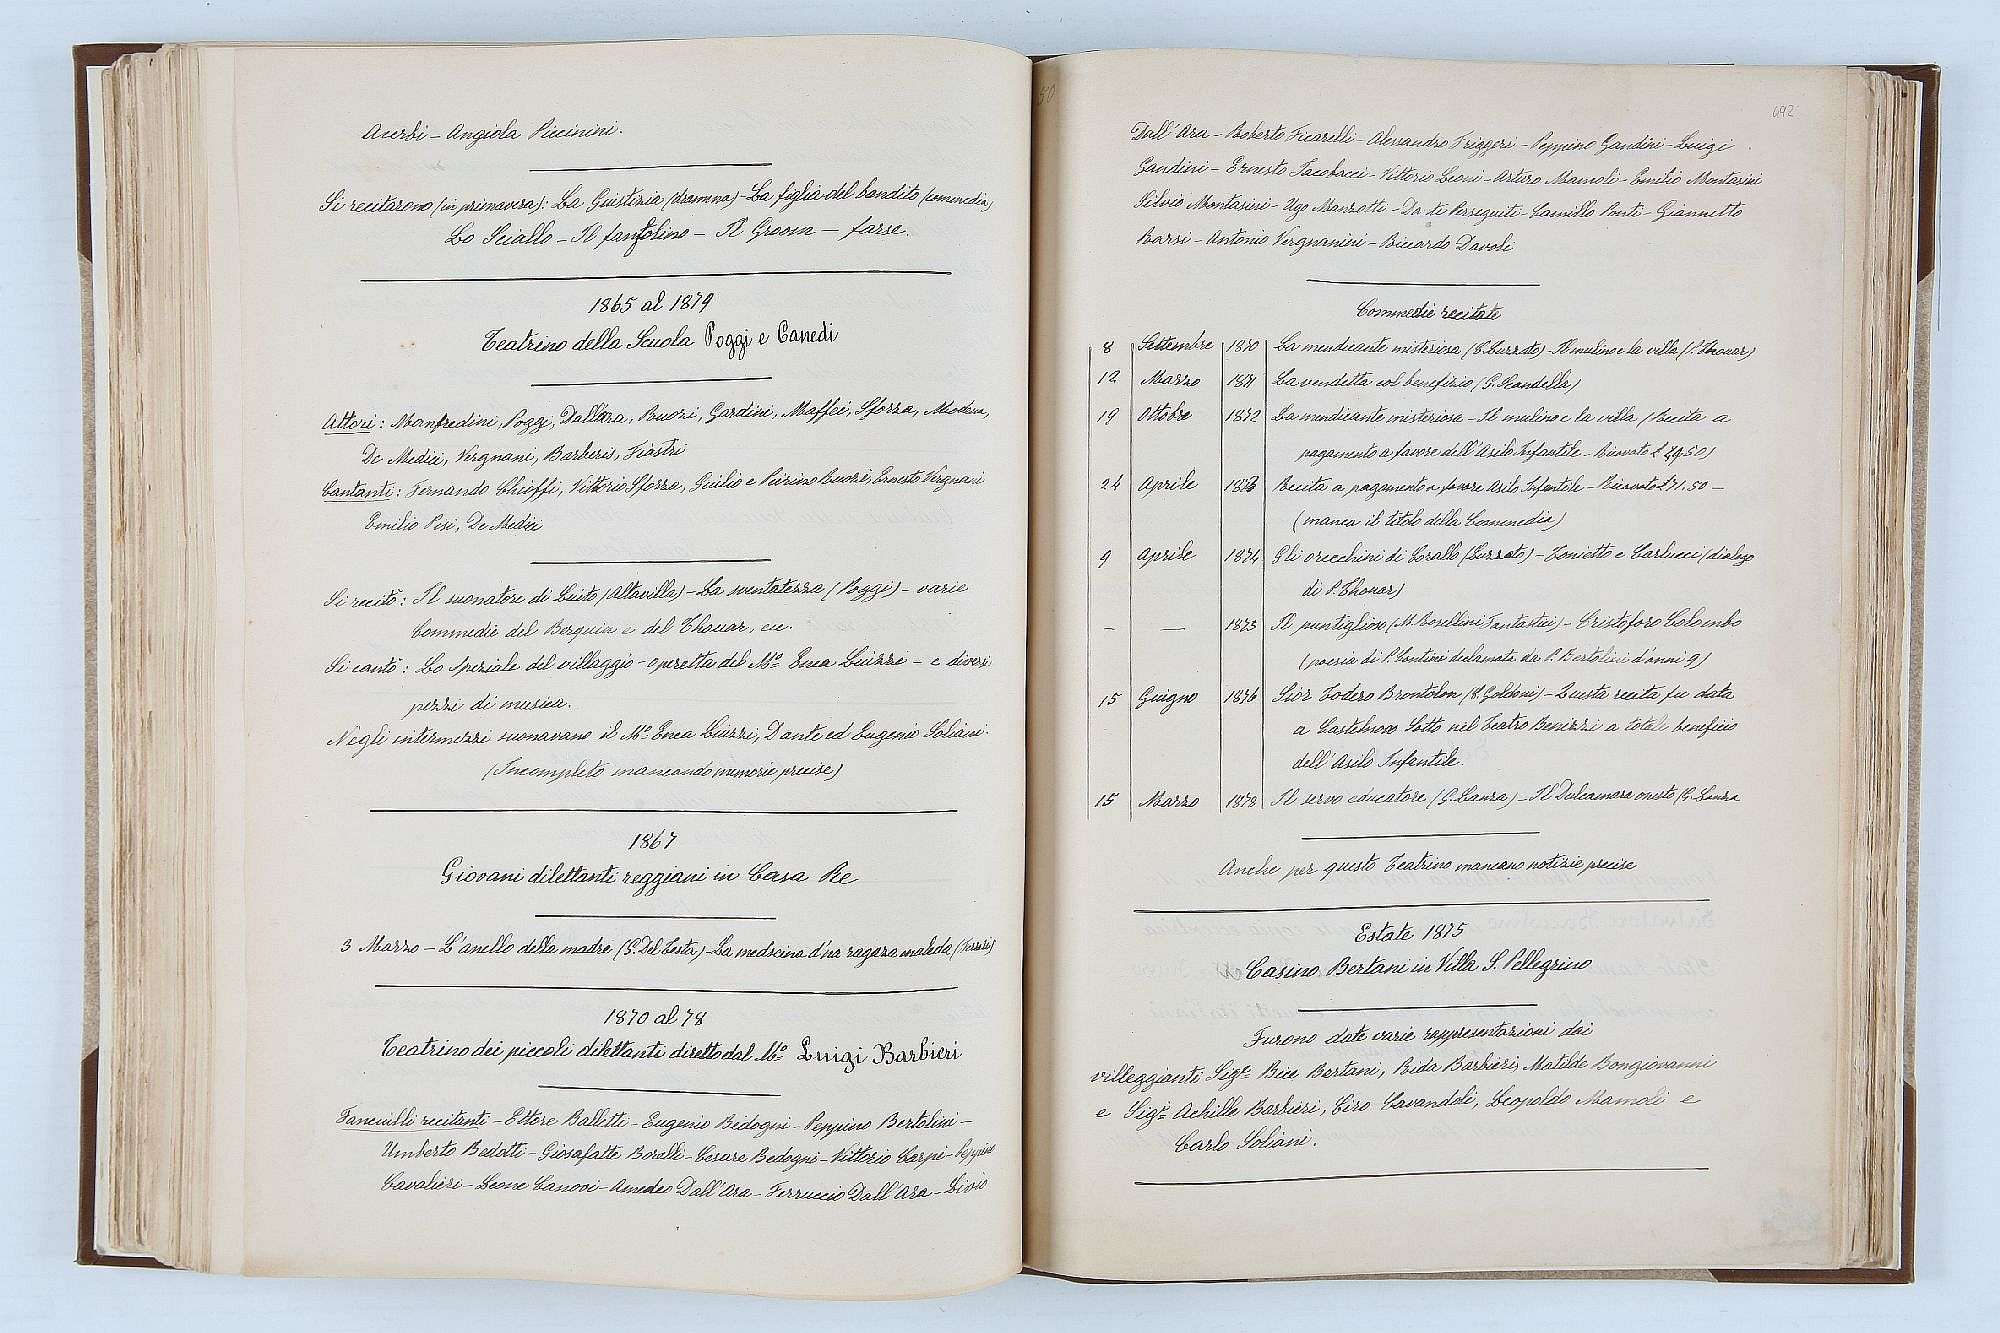 Acerbi – Angiola Piccinini.
Si recitarono (in primavera): La Giustizia (dramma) – La figlia del bandito (commedia)
Lo Sciallo – Il fantolino – Il Groom – farse.
1865 al 1879
Teatrino della Scuola Poggi e Canedi
Attori: Manfredini, Poggi, Dall'Ara, Buozi, Gardini, Maffei, Sforza, Modena,
De Medici, Vergnani, Barberis, Fiastri
Cantanti: Fernando Chioffi, Vittorio Sforza, Giulio e Pierino Buozi, Ernesto Vergnani
Emilio Pesi, De Medici
Si recitò: Il suonatore di Liuto (Altavilla) – La sventatezza (Poggi) – varie
Commedie del Berquin e del Thouar, ecc.
Si cantò: Lo Speziale del villaggio – operetta del Mº Enea Liuzzi – e diversi
pezzi di musica.
Negli intermezzi suonavano il Mº Enea Liuzzi, Dante ed Eugenio Soliani.
(Incompleto mancando memorie precise)
1867
Giovani dilettanti reggiani in Casa Re
3 Marzo – L'anello della madre (G. Del Testa) – La medscina d'na ragaza maleda (Ferrari)
1870 al 78
Teatrino dei piccoli dilettanti diretto dal Mº Luigi Barbieri
Fanciulli recitanti – Ettore Balletti – Eugenio Bedogni – Peppino Bertolini –
Umberto Bedotti – Giosafatte Boralli – Cesare Bedogni – Vittorio Carpi – Peppino
Cavalieri – Leone Canovi – Amedeo Dall'Ara – Ferruccio Dall'Ara – Livio
50
692
Dall'Ara – Roberto Ficarelli – Alessandro Friggeri – Peppino Gandini – Luigi
Gandini – Ernesto Jacobacci – Vittorio Leoni – Arturo Mamoli – Emilio Montasini
Silvio Montasini – Ugo Manzotti – Da te Perseguiti – Camillo Ponti – Giannetto
Barsi – Antonio Vergnanini – Riccardo Davoli
Commedie recitate
8 Settembre 1870 La mendicante misteriosa (E. Luzzato) – Il mulino e la villa (P. Thouar)
12 Marzo 1871 La vendetta col benefizio (G. Randella)
19 Ottobre 1872 La mendicante misteriosa – Il mulino e la villa (Recita a
pagamento a favore dell'Asilo Infantile – Ricavato £ 49.50)
24 Aprile 1873 Recita a pagamento a favore Asilo Infantile – Ricavato £ 71.50 –
(manca il titolo della Commedia)
9 Aprile 1874 Gli orecchini di Corallo (Luzzato) – Tonietto e Carluccio (dialogo
di P. Thouar)
– – 1875 Il puntiglioso (M. Rosellini Fantastici) – Cristoforo Colombo
(poesia di P. Contini declamata da P. Bertolini d'anni 9)
15 Giugno 1876 Sior Todero Brontolon (C. Goldoni) – Questa recita fu data
a Castelnovo Sotto nel Teatro Benizzi a totale beneficio
dell'Asilo Infantile.
15 Marzo 1878 Il servo educatore (G. Lanza) – Il Dulcamara onesto (G. Lanza
Anche per questo Teatrino mancano notizie precise
Estate 1875
Casino Bertani in Villa S. Pellegrino
Furono date varie rappresentazioni dai
villeggianti Sigᵉ Bice Bertani, Bida Barbieri, Matilde Bongiovanni
e Sigⁱ Achille Barbieri, Ciro Cavandoli, Leopoldo Mamoli e
Carlo Soliani.